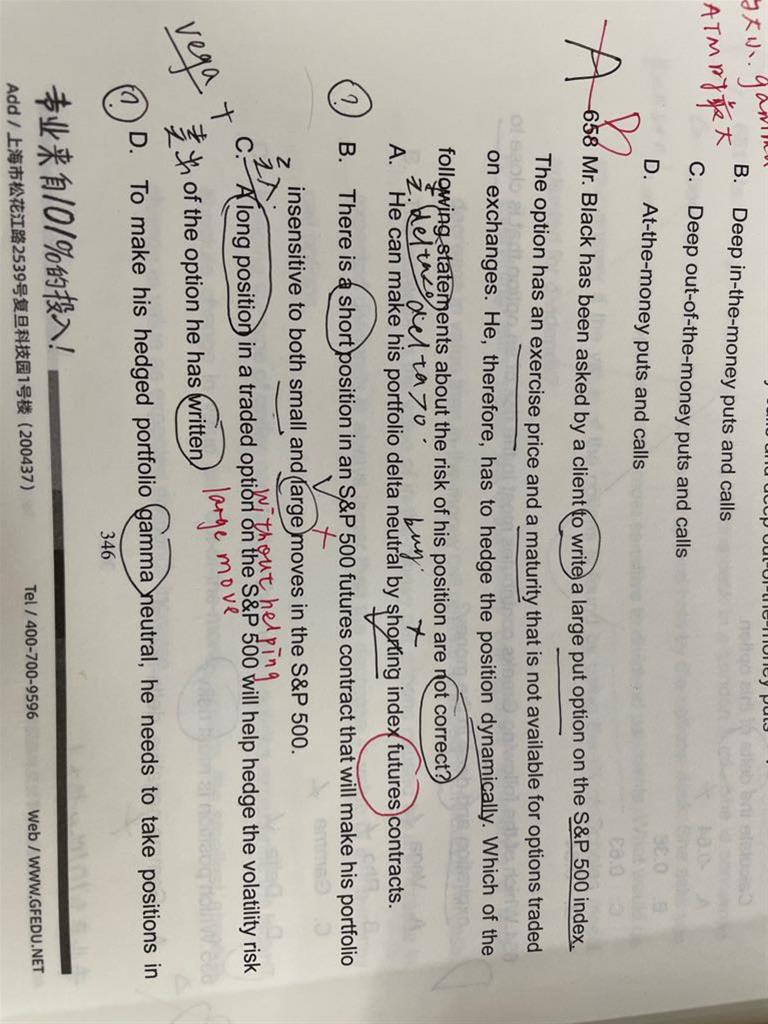 ATM时最大
B. Deep in-the-money puts and calls
C. Deep out-of-the-money puts and calls
D. At-the-money puts and calls
A B
658 Mr. Black has been asked by a client to write a large put option on the S&P 500 index.
The option has an exercise price and a maturity that is not available for options traded
on exchanges. He, therefore, has to hedge the position dynamically. Which of the
following statements about the risk of his position are not correct?
delta<0 delta>0. buy.
A. He can make his portfolio delta neutral by shorting index futures contracts.
B. There is a short position in an S&P 500 futures contract that will make his portfolio
insensitive to both small and large moves in the S&P 500.
without helping
large move
C. A long position in a traded option on the S&P 500 will help hedge the volatility risk
of the option he has written.
vega +
D. To make his hedged portfolio gamma neutral, he needs to take positions in
346
专业来自101%的投入!
Add / 上海市松花江路2539号复旦科技园1号楼 (200437) Tel / 400-700-9596 Web / WWW.GFEDU.NET